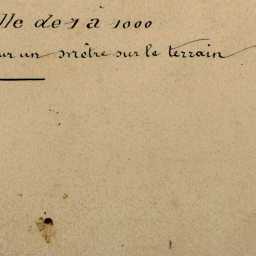 lle de 1 à 1000
ur un mètre sur le terrain